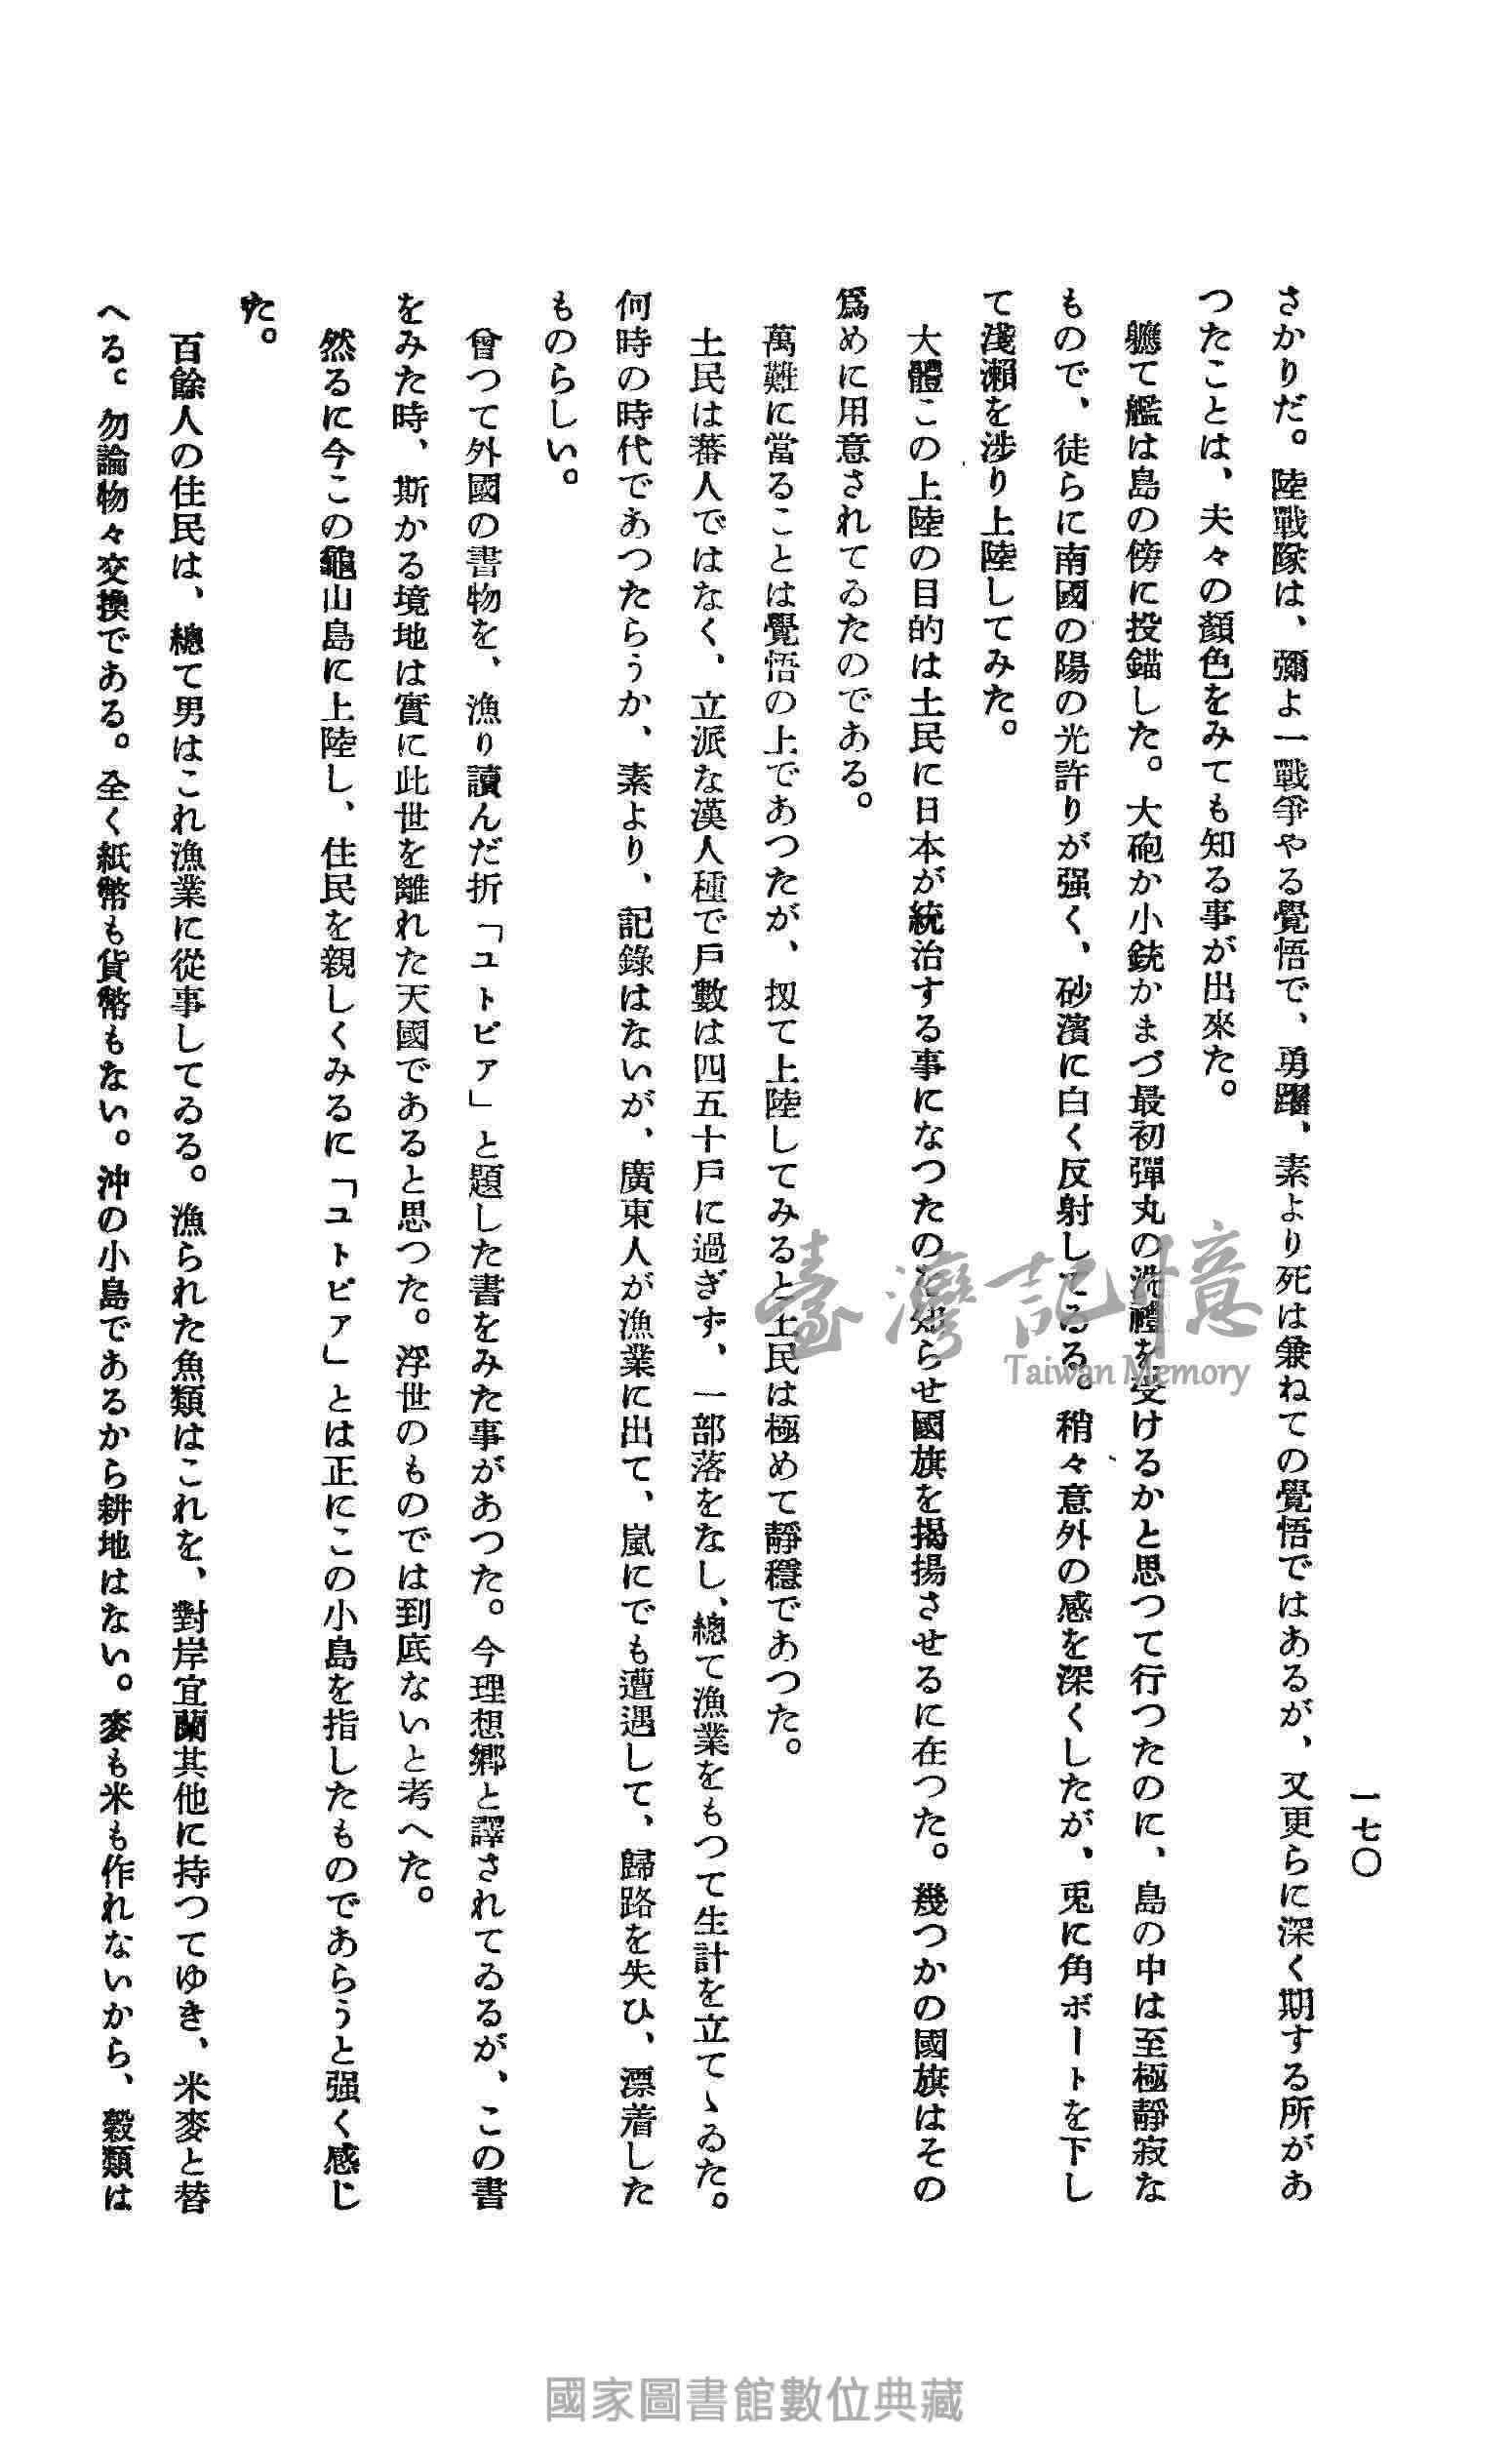 一七〇
さかりだ。陸戰隊は、彌よ一戰爭やる覺悟で、勇躍、素より死は兼ねての覺悟ではあるが、又更らに深く期する所があ
つたことは、夫々の顏色をみても知る事が出來た。
軈て艦は島の傍に投錨した。大砲か小銃かまづ最初彈丸の洗禮を受けるかと思つて行つたのに、島の中は至極靜寂な
もので、徒らに南國の陽の光許りが强く、砂濱に白く反射してゐる。稍々意外の感を深くしたが、兎に角ボートを下し
て淺瀨を涉り上陸してみた。
大體この上陸の目的は土民に日本が統治する事になつたのを知らせ國旗を揭揚させるに在つた。幾つかの國旗はその
爲めに用意されてゐたのである。
萬難に當ることは覺悟の上であつたが、扨て上陸してみると土民は極めて靜穩であつた。
土民は蕃人ではなく、立派な漢人種で戶數は四五十戶に過ぎず、一部落をなし、總て漁業をもつて生計を立てゝゐた。
何時の時代であつたらうか、素より、記錄はないが、廣東人が漁業に出て、嵐にでも遭遇して、歸路を失ひ、漂着した
ものらしい。
曾つて外國の書物を、漁り讀んだ折「ユトピア」と題した書をみた事があつた。今理想鄕と譯されてゐるが、この書
をみた時、斯かる境地は實に此世を離れた天國であると思つた。浮世のものでは到底ないと考へた。
然るに今この龜山島に上陸し、住民を親しくみるに「ユトピア」とは正にこの小島を指したものであらうと强く感じ
た。
百餘人の住民は、總て男はこれ漁業に從事してゐる。漁られた魚類はこれを、對岸宜蘭其他に持つてゆき、米麥と替
へる。勿論物々交換である。全く紙幣も貨幣もない。沖の小島であるから耕地はない。麥も米も作れないから、穀類は
臺灣記憶
Taiwan Memory
國家圖書館數位典藏